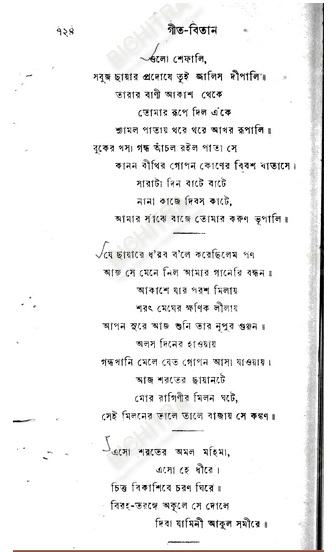 ৭২৪
গীত-বিতান
ওলো শেফালি,
সবুজ ছায়ার প্রদোষে তুই জ্বালিস দীপালি॥
তারার বাণী আকাশ থেকে
তোমার রূপে দিল এঁকে
শ্যামল পাতায় থরে থরে আখর রূপালি॥
বুকের খসা গন্ধ আঁচল রইল পাতা সে
কানন বীথির গোপন কোণের বিবশ বাতাসে।
সারাটা দিন বাটে বাটে
নানা কাজে দিবস কাটে,
আমার সাঁঝে বাজে তোমার করুণ ভূপালি॥
যে ছায়ারে ধ'রব ব'লে করেছিলেম পণ
আজ সে মেনে নিল আমার গানেরি বন্ধন॥
আকাশে যার পরশ মিলায়
শরৎ মেঘের ক্ষণিক লীলায়
আপন সুরে আজ শুনি তার নূপুর গুঞ্জন॥
অলস দিনের হাওয়ায়
গন্ধখানি মেলে যেত গোপন আসা যাওয়ায়।
আজ শরতের ছায়ানটে
মোর রাগিণীর মিলন ঘটে,
সেই মিলনের তালে তালে বাজায় সে কঙ্কণ॥
এসো শরতের অমল মহিমা,
এসো হে ধীরে।
চিত্ত বিকাশিবে চরণ ঘিরে॥
বিরহ-তরঙ্গে অকূলে সে দোলে
দিবা যামিনী আকুল সমীরে॥
BICHITRA